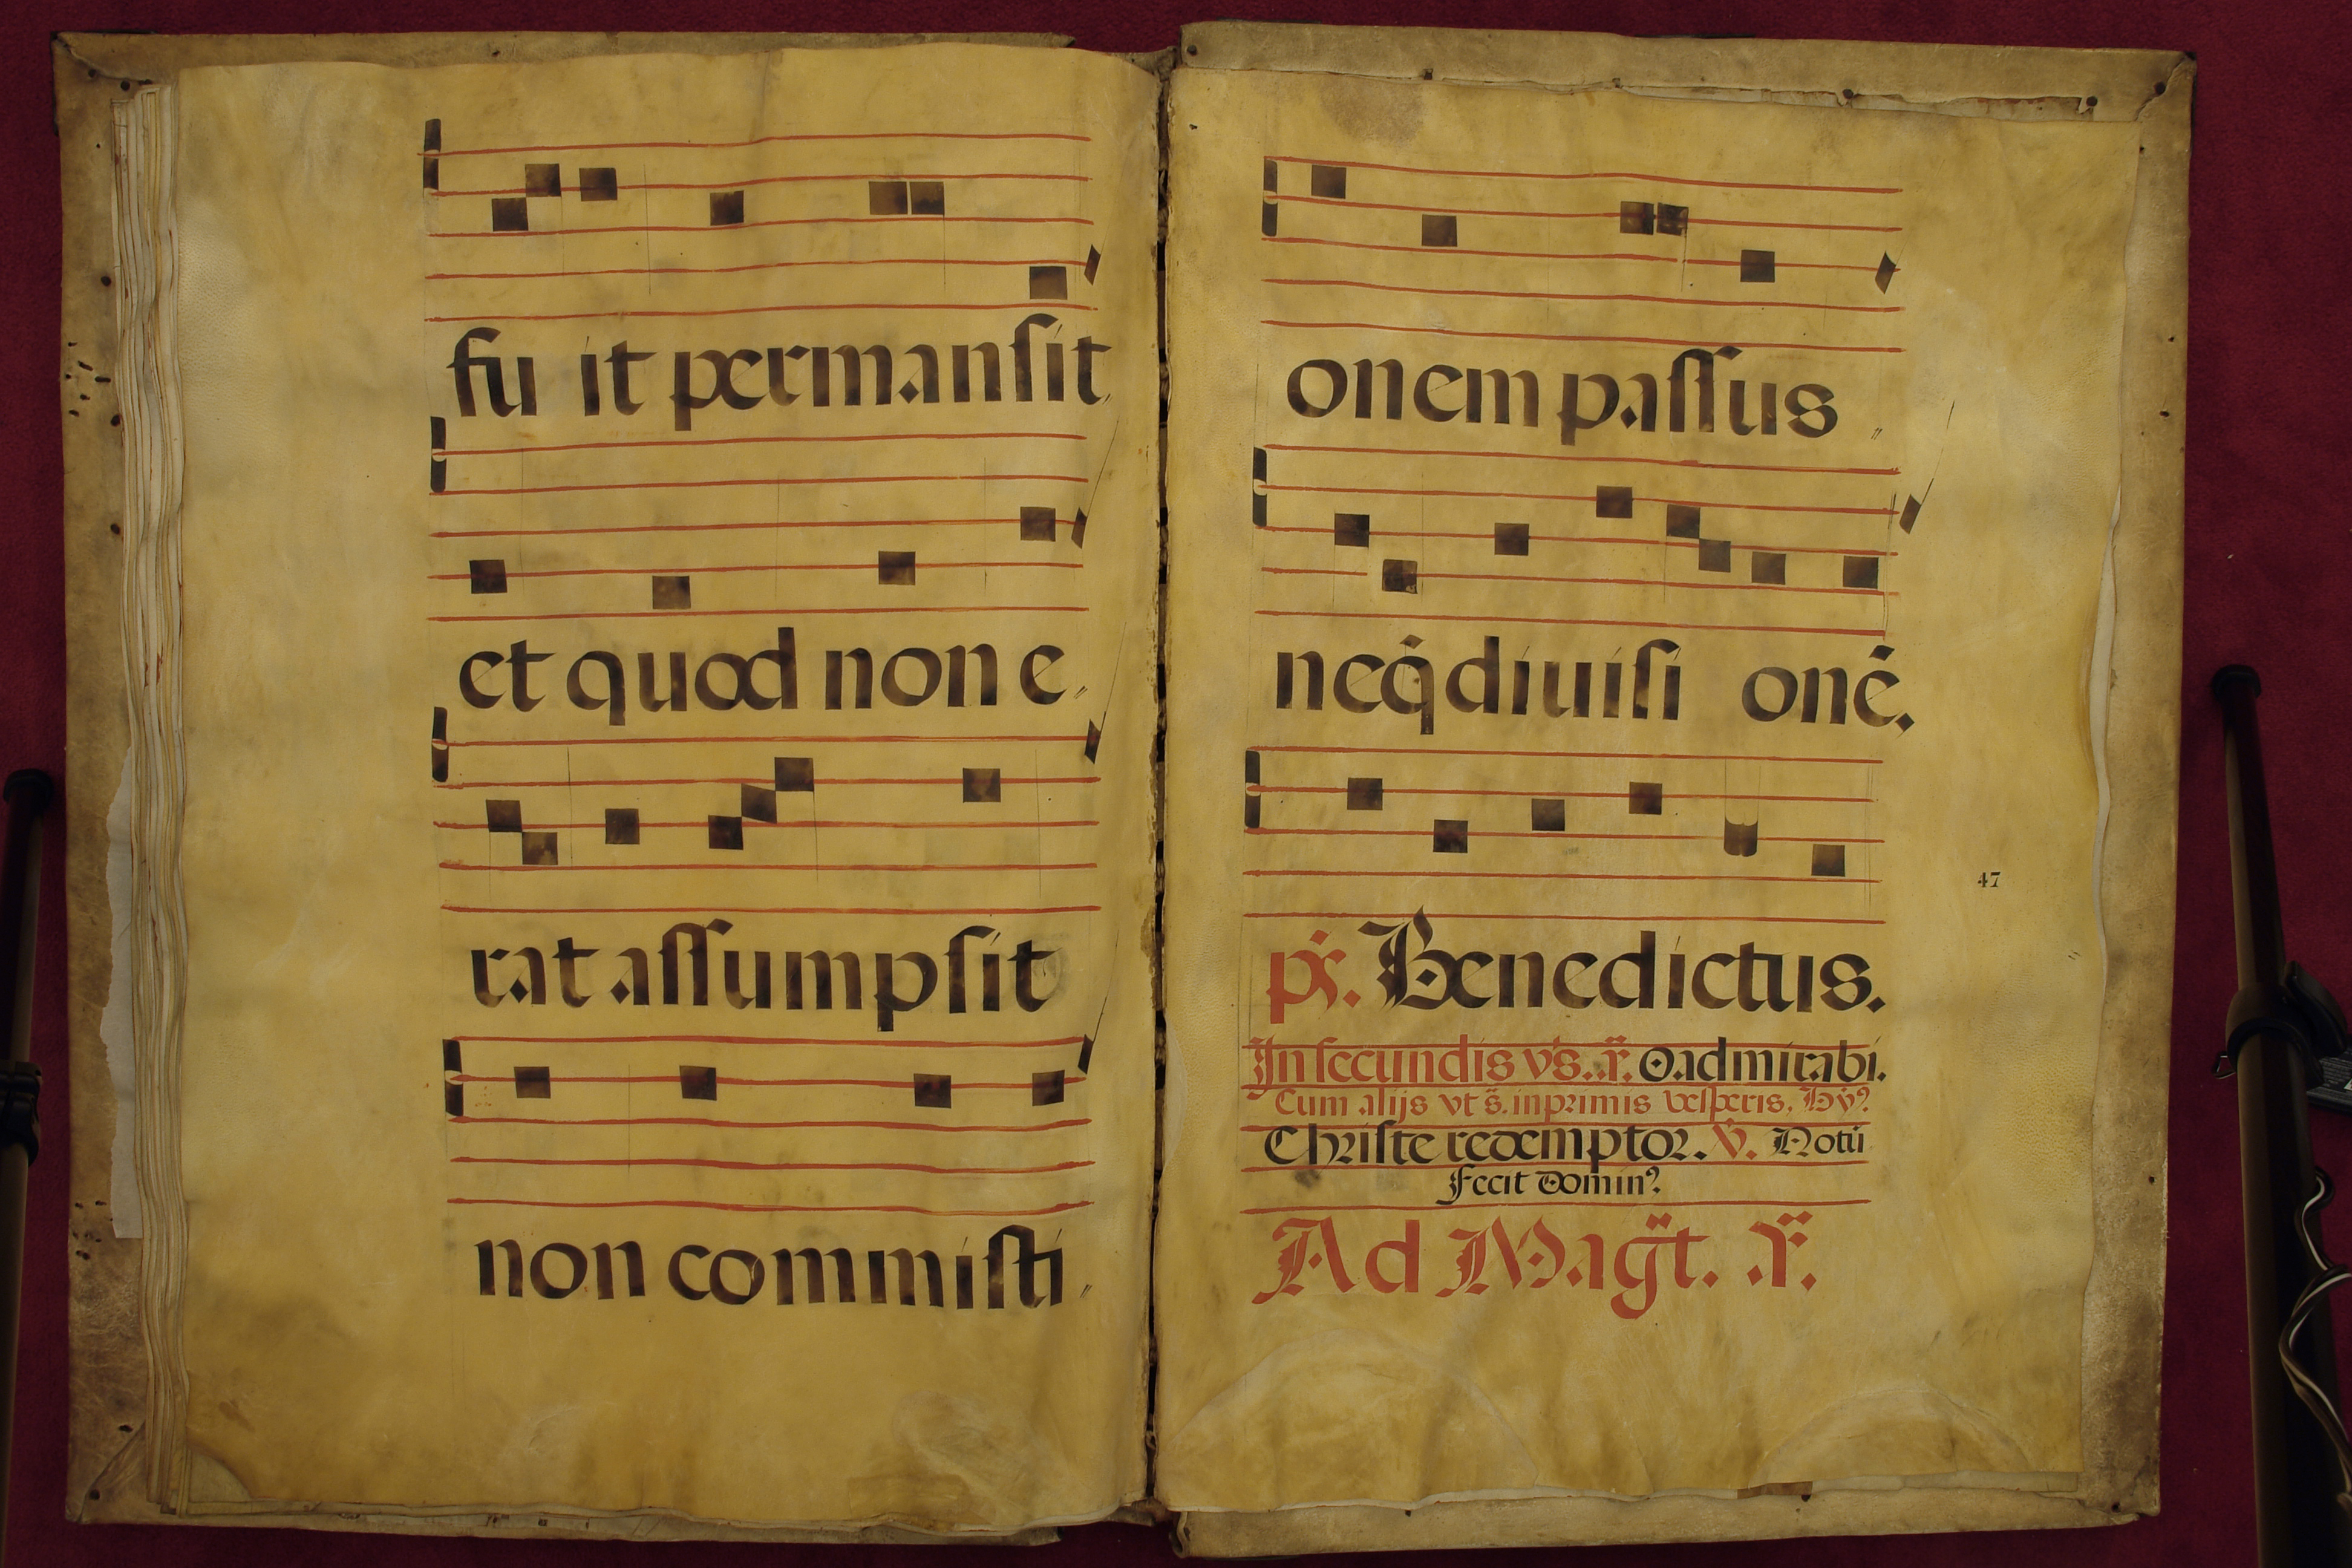 fu it permansit
et quod non e
rat assumpsit
non commisti
onem passus
neq̇ diuisi onē.
ps. Benedictus.
In secundis vs. ℣. O admirabi.
Cum alijs vt s. in primis vesperis. Hy⁹
Christe redemptor. ℣. Notū
fecit Domin⁹
Ad Magt. 
47